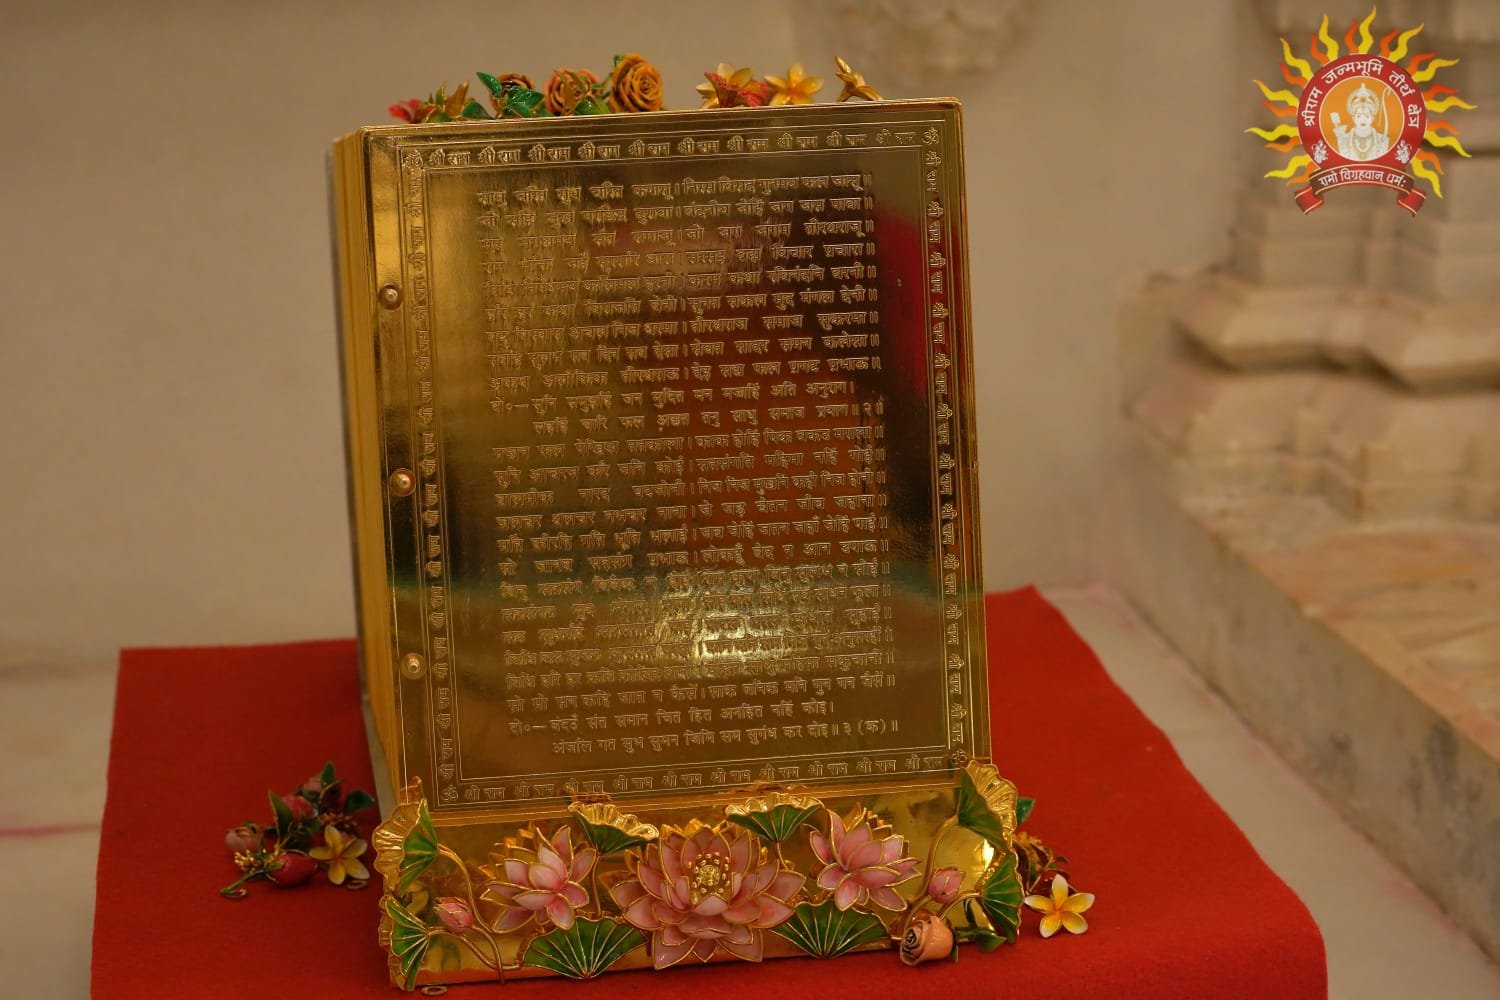 श्री राम श्री राम श्री राम श्री राम श्री राम श्री राम श्री राम श्री राम श्री राम श्री राम ॐ
साधु चरित सुभ चरित कपासू। निरस बिसद गुनमय फल जासू॥
जो सहि दुख परछिद्र दुरावा। बंदनीय जेहिं जग जस पावा॥
मुद मंगलमय संत समाजू। जो जग जंगम तीरथराजू॥
राम भक्ति जहँ सुरसरि धारा। सरसइ ब्रह्म बिचार प्रचारा॥
बिधि निषेधमय कलिमल हरनी। करम कथा रबिनंदनि बरनी॥
हरि हर कथा बिराजति बेनी। सुनत सकल मुद मंगल देनी॥
बटु बिस्वास अचल निज धरमा। तीरथराज समाज सुकरमा॥
सबहि सुलभ सब दिन सब देसा। सेवत सादर समन कलेसा॥
अकथ अलौकिक तीरथराऊ। देइ सद्य फल प्रगट प्रभाऊ॥
दो०— सुनि समुझहिं जन मुदित मन मज्जहिं अति अनुराग।
लहहिं चारि फल अछत तनु साधु समाज प्रयाग॥ २॥
मज्जन फल पेखिअ ततकाला। काक होहिं पिक बकउ मराला॥
सुनि आचरज करै जनि कोई। सतसंगति महिमा नहिं गोई॥
बालमीक नारद घटजोनी। निज निज मुखनि कही निज होनी॥
जलचर थलचर नभचर नाना। जे जड़ चेतन जीव जहाना॥
मति कीरति गति भूति भलाई। जब जेहिं जतन जहाँ जेहिं पाई॥
सो जानब सतसंग प्रभाऊ। लोकहुँ बेद न आन उपाऊ॥
बिनु सतसंग बिबेक न होई। राम कृपा बिनु सुलभ न सोई॥
सो मो सन कहि जात न कैसें। साक बनिक मनि गुन गन जैसें॥
दो०— बंदउँ संत समान चित हित अनहित नहिं कोइ।
अंजलि गत सुभ सुमन जिमि सम सुगंध कर दोइ॥ ३ (क)॥
ॐ श्री राम श्री राम श्री राम श्री राम श्री राम श्री राम श्री राम श्री राम श्री राम श्री राम
श्रीराम जन्मभूमि तीर्थ क्षेत्र
रामो विग्रहवान् धर्मः